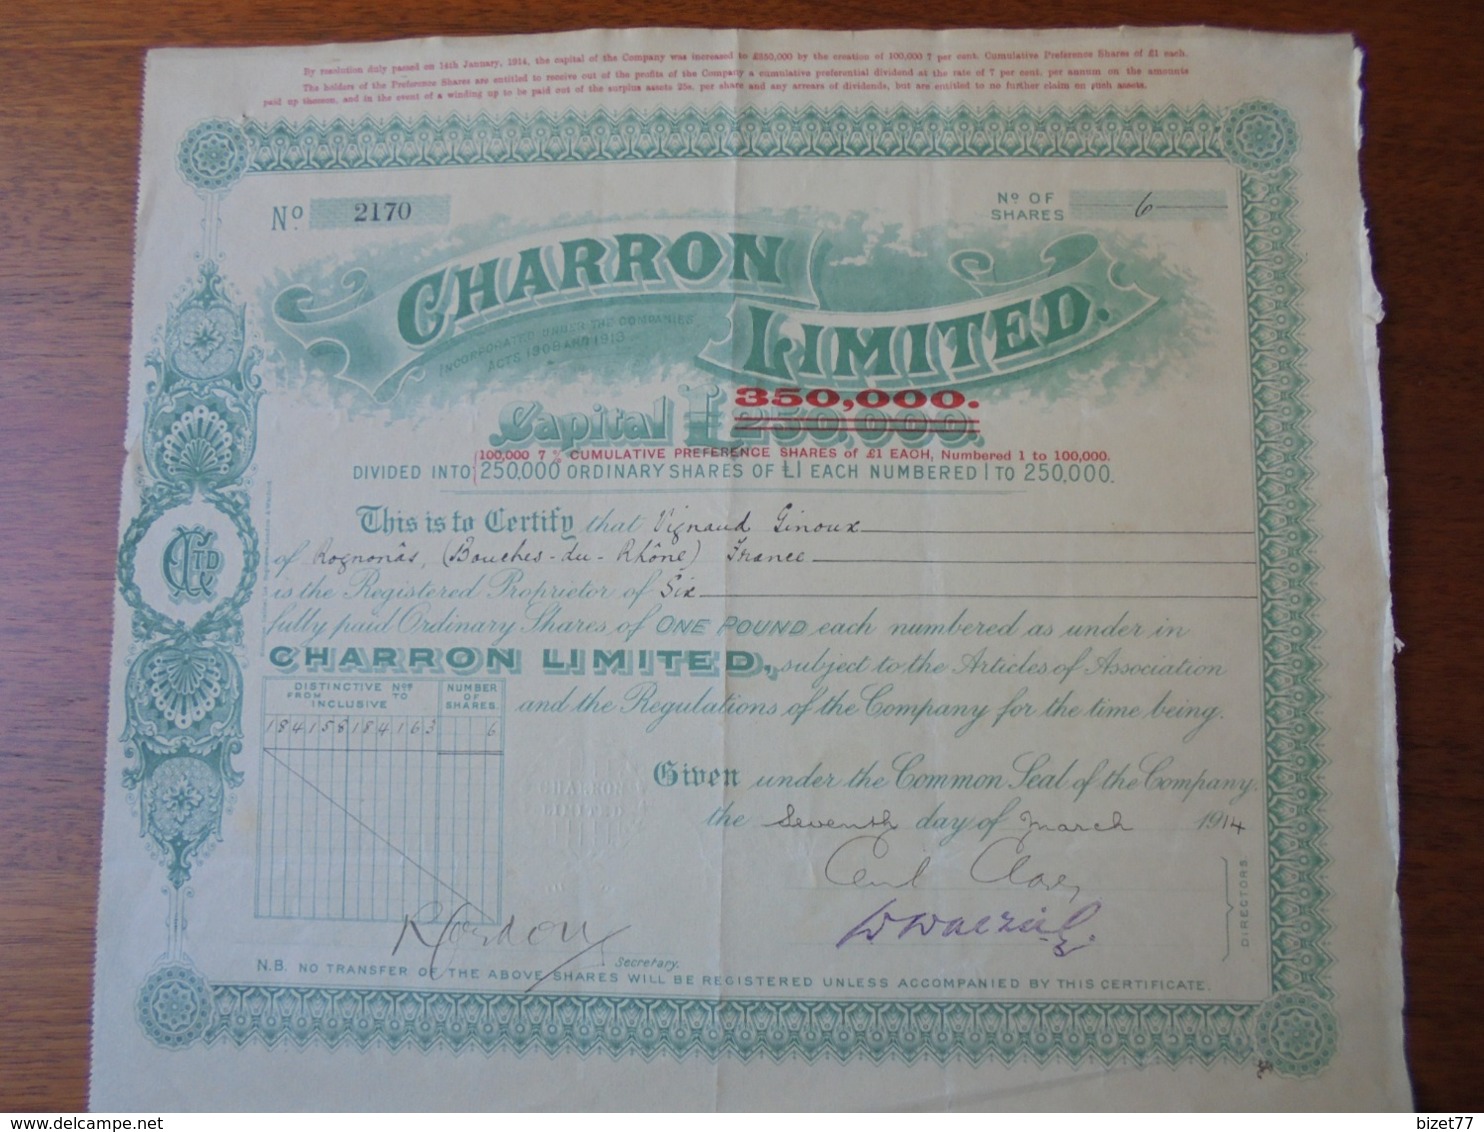 By resolution duly passed on 14th January, 1914, the capital of the Company was increased to £350,000 by the creation of 100,000 7 per cent. Cumulative Preference Shares of £1 each.
The holders of the Preference Shares are entitled to receive out of the profits of the Company a cumulative preferential dividend at the rate of 7 per cent. per annum on the amounts
paid up thereon, and in the event of a winding up to be paid out of the surplus assets 25s. per share and any arrears of dividends, but are entitled to no further claim on such assets.
No. 2170
No OF SHARES 6
CHARRON LIMITED.
INCORPORATED UNDER THE COMPANIES
ACTS 1908 AND 1913
350,000.
Capital £250,000.
100,000 7 % CUMULATIVE PREFERENCE SHARES of £1 EACH, Numbered 1 to 100,000.
DIVIDED INTO 250,000 ORDINARY SHARES OF £1 EACH NUMBERED 1 TO 250,000.
This is to Certify that Vignaud Ginoux
of Rognonâs, (Bouches-du-Rhône) France
is the Registered Proprietor of Six
fully paid Ordinary Shares of ONE POUND each numbered as under in
CHARRON LIMITED, subject to the Articles of Association
and the Regulations of the Company for the time being.
DISTINCTIVE Nos
FROM TO
INCLUSIVE
NUMBER
OF
SHARES
184158 184163 6
CLTD
CHARRON
LIMITED
Given under the Common Seal of the Company
the Seventh day of March 1914
DIRECTORS
Secretary.
N.B. NO TRANSFER OF THE ABOVE SHARES WILL BE REGISTERED UNLESS ACCOMPANIED BY THIS CERTIFICATE.
www.delcampe.net
bizet77